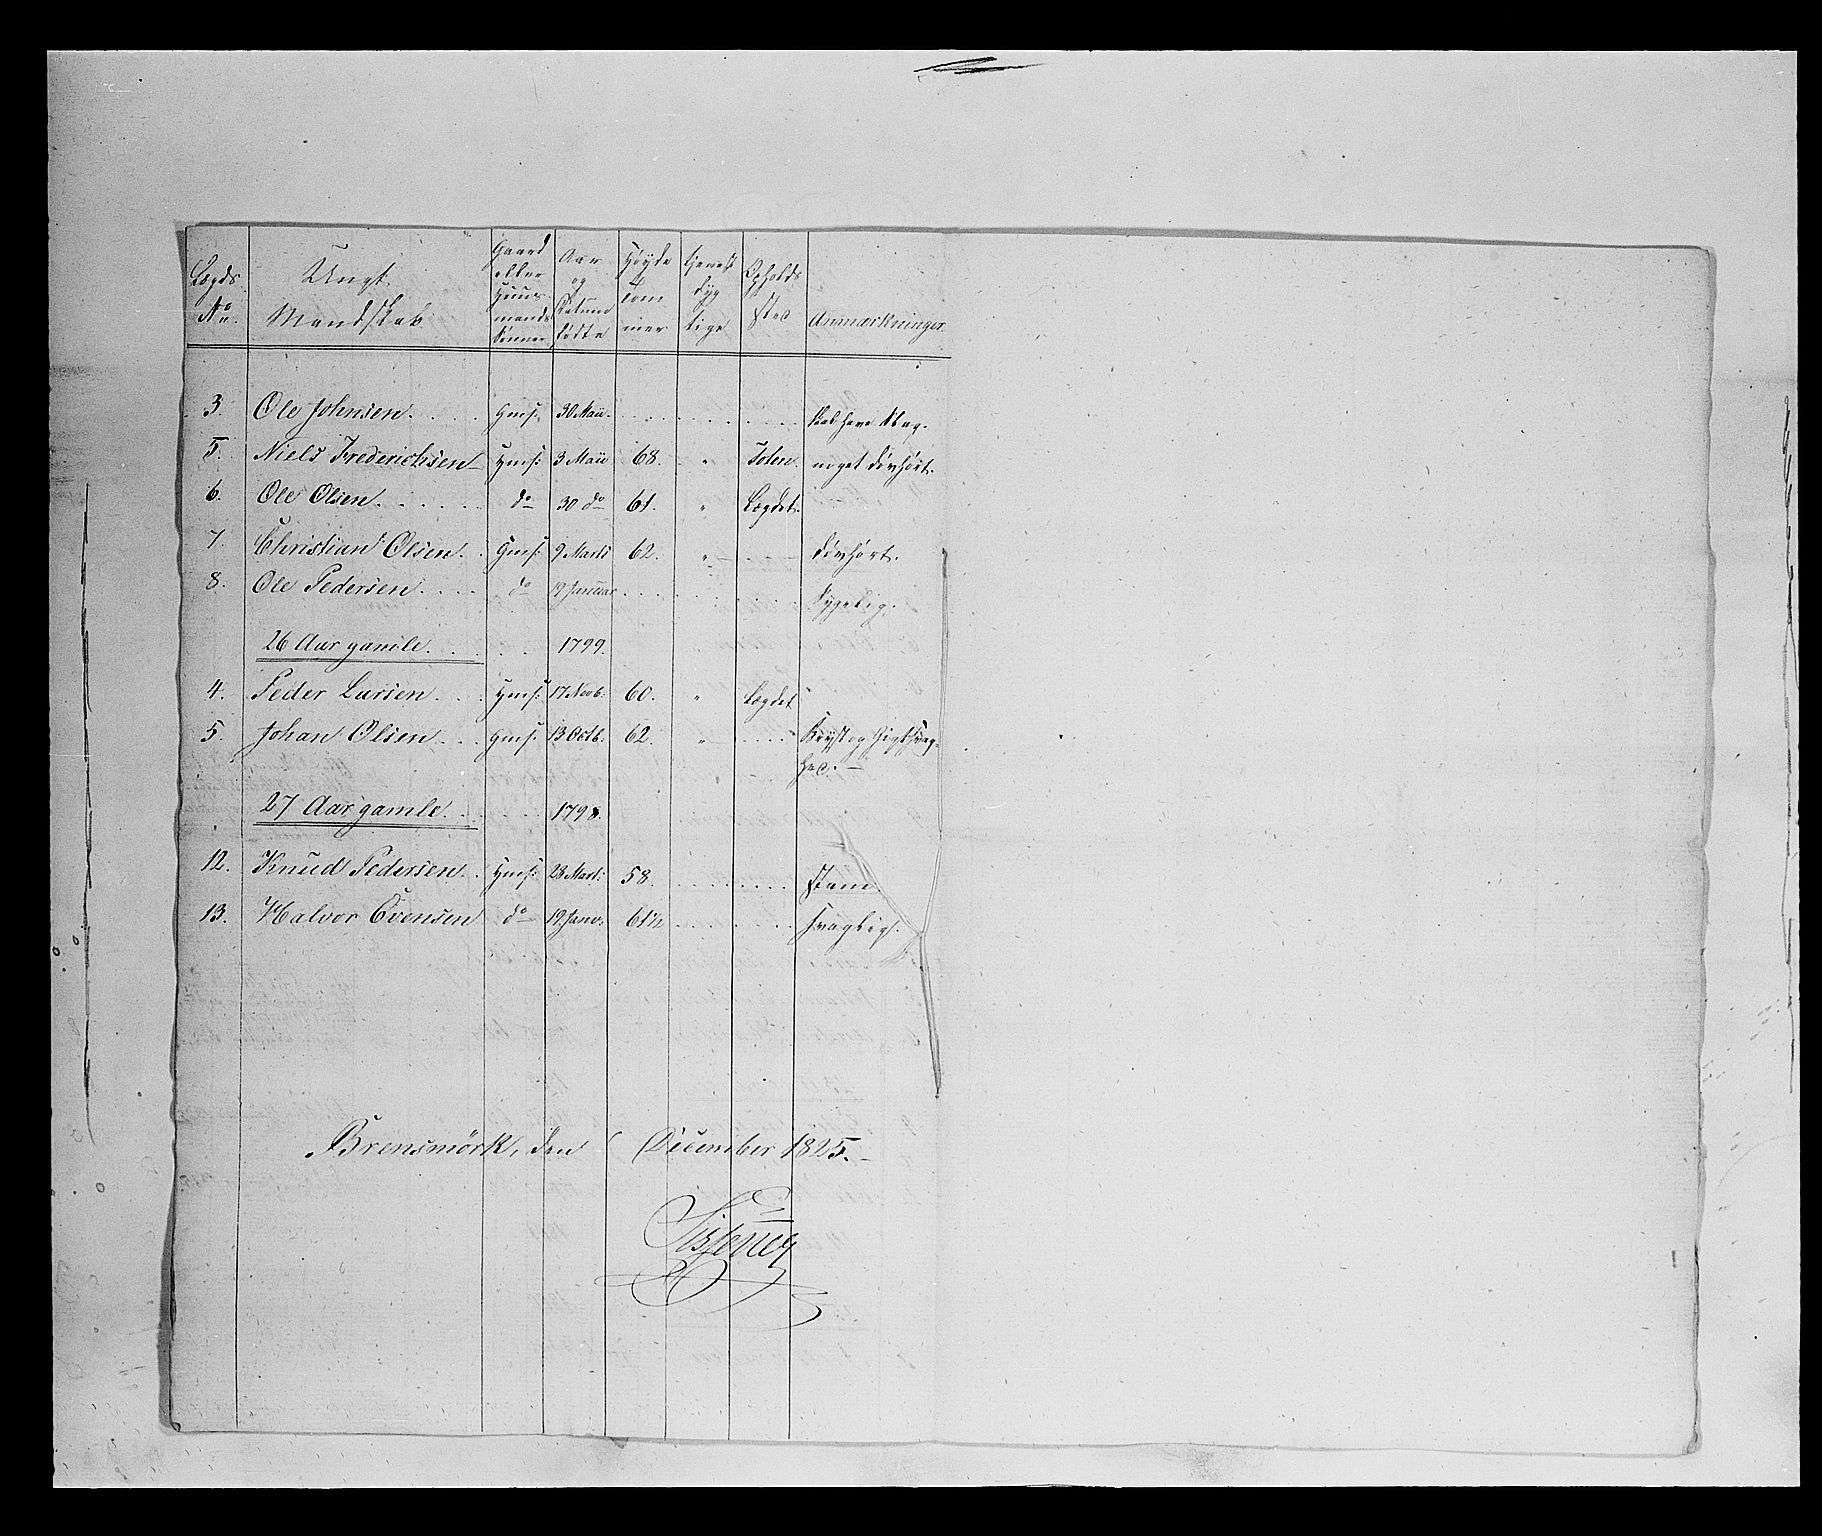 Lægds No.	Ungt Mandskab	Gaard eller Huusmands Sønner	Aar og Datum Fødte	Høyde Tommer	tjenestdygtige	Opholds sted	Anmærkninger
3.	Ole Johnsen	Gms:	30 Maii			skal have Abug.
5.	Niels Frederichsen	Hms:	3 Maii	68.	"	Toten.	noget døvhørt.
6.	Ole Olsen	do	30 do	61.	"	Lægdet.
7.	Christian Olsen	Gms:	9 Marti	62.	"		døvhørt.
8.	Ole Pedersen	do	19 Januar				sygelig.
26 Aar gamle	1799.
4.	Peder Larsen	Hms:	17 Novb:	60.	"	Lægdet
5.	Johan Olsen	Gms:	13 Octb.	62.	"		Bryst og Gigtsvag-
hed.
27 Aar gamle	1798.
12.	Knud Pedersen	Hms:	23 Marti:	58.			stam.
13.	Halvor Evensen	do	19 Janv:	61½			svaglig.
Brensmörk, den December 1825.